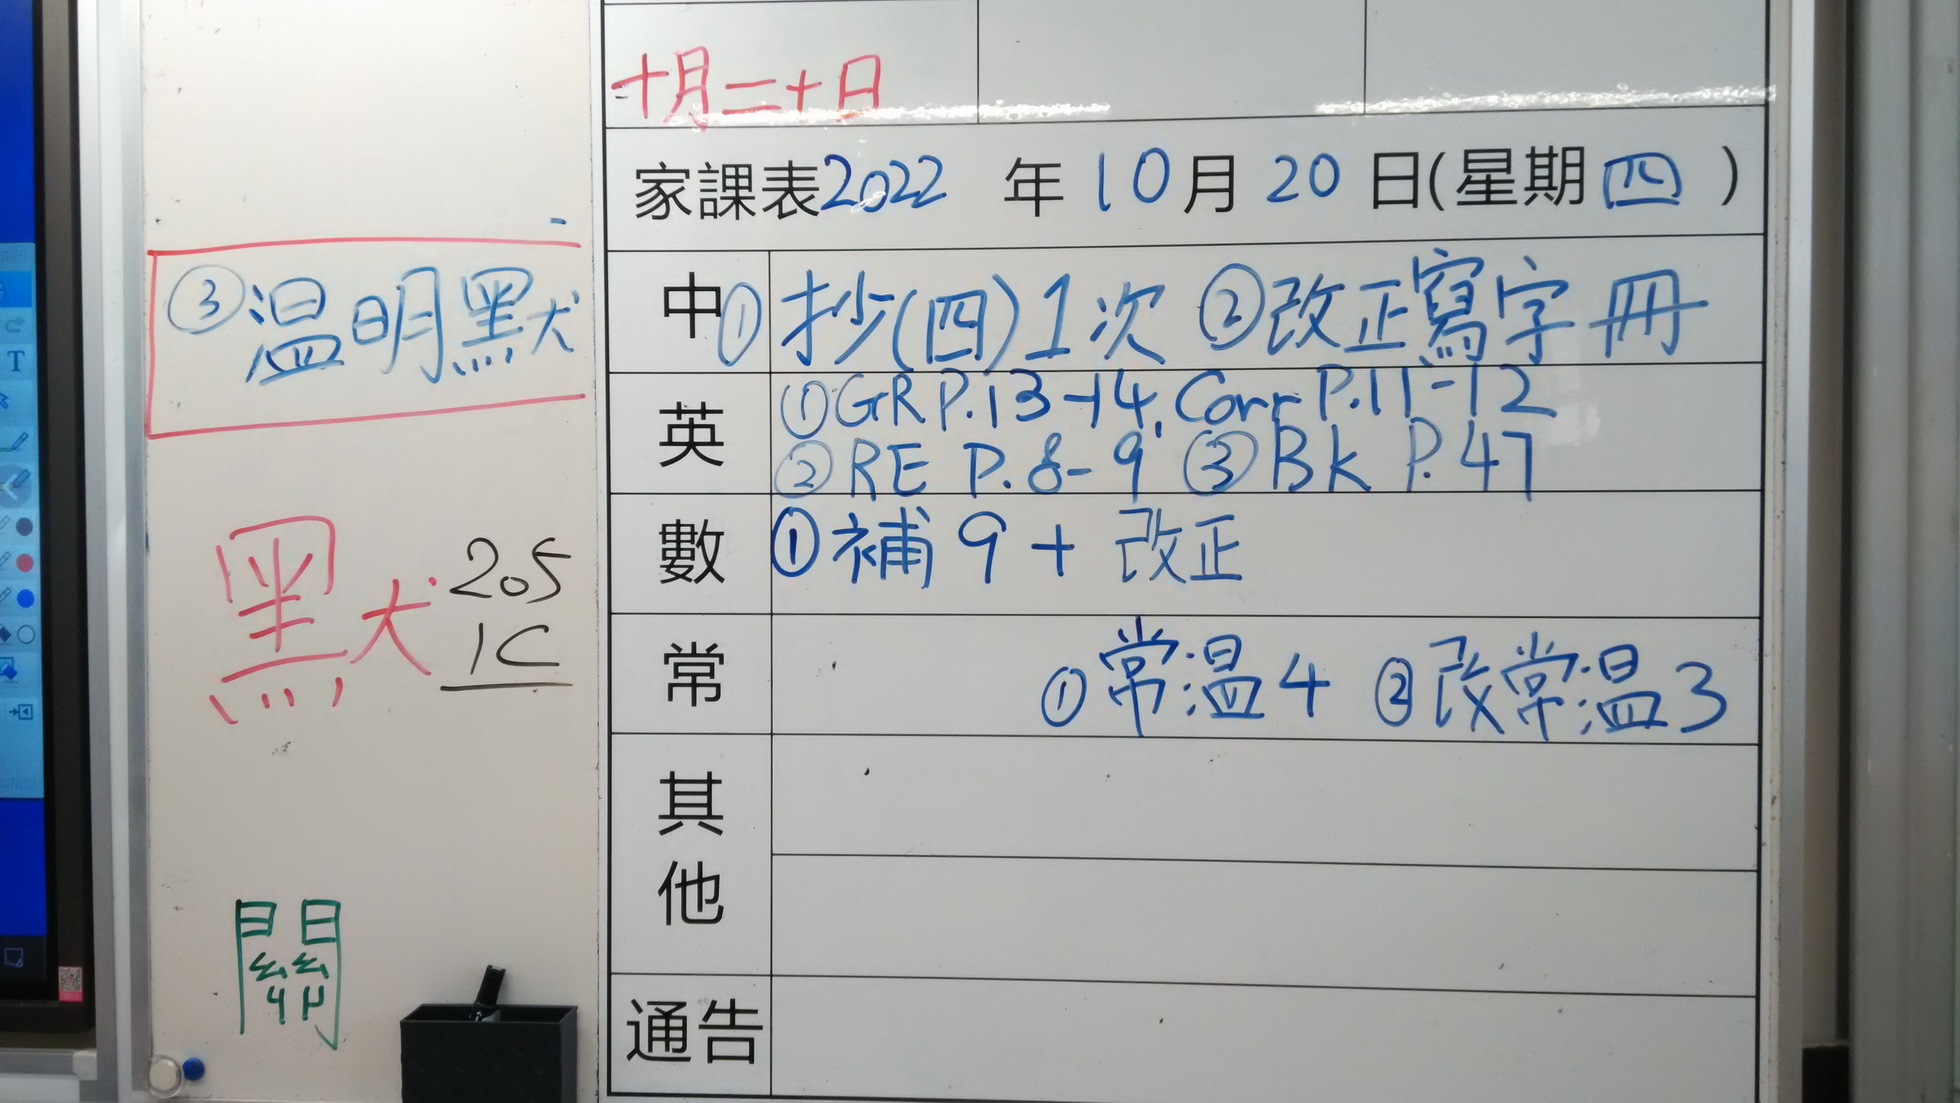 十月二十日
家課表2022 年 10月 20 日(星期四 )
③温明默
中 ① 抄(四)1次 ②改正寫字冊
英 ①GR P.13-14, Corr P.11-12
②RE P.8-9 ③BK P.47
數 ①補9+改正
常 ①常温4 ②改常温3
其他
通告
默
205
1C
關
T